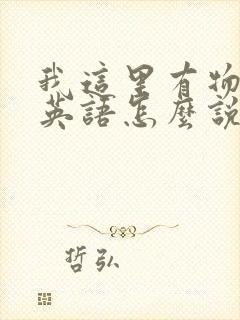 我這里有物
英語怎麼說
哲弘